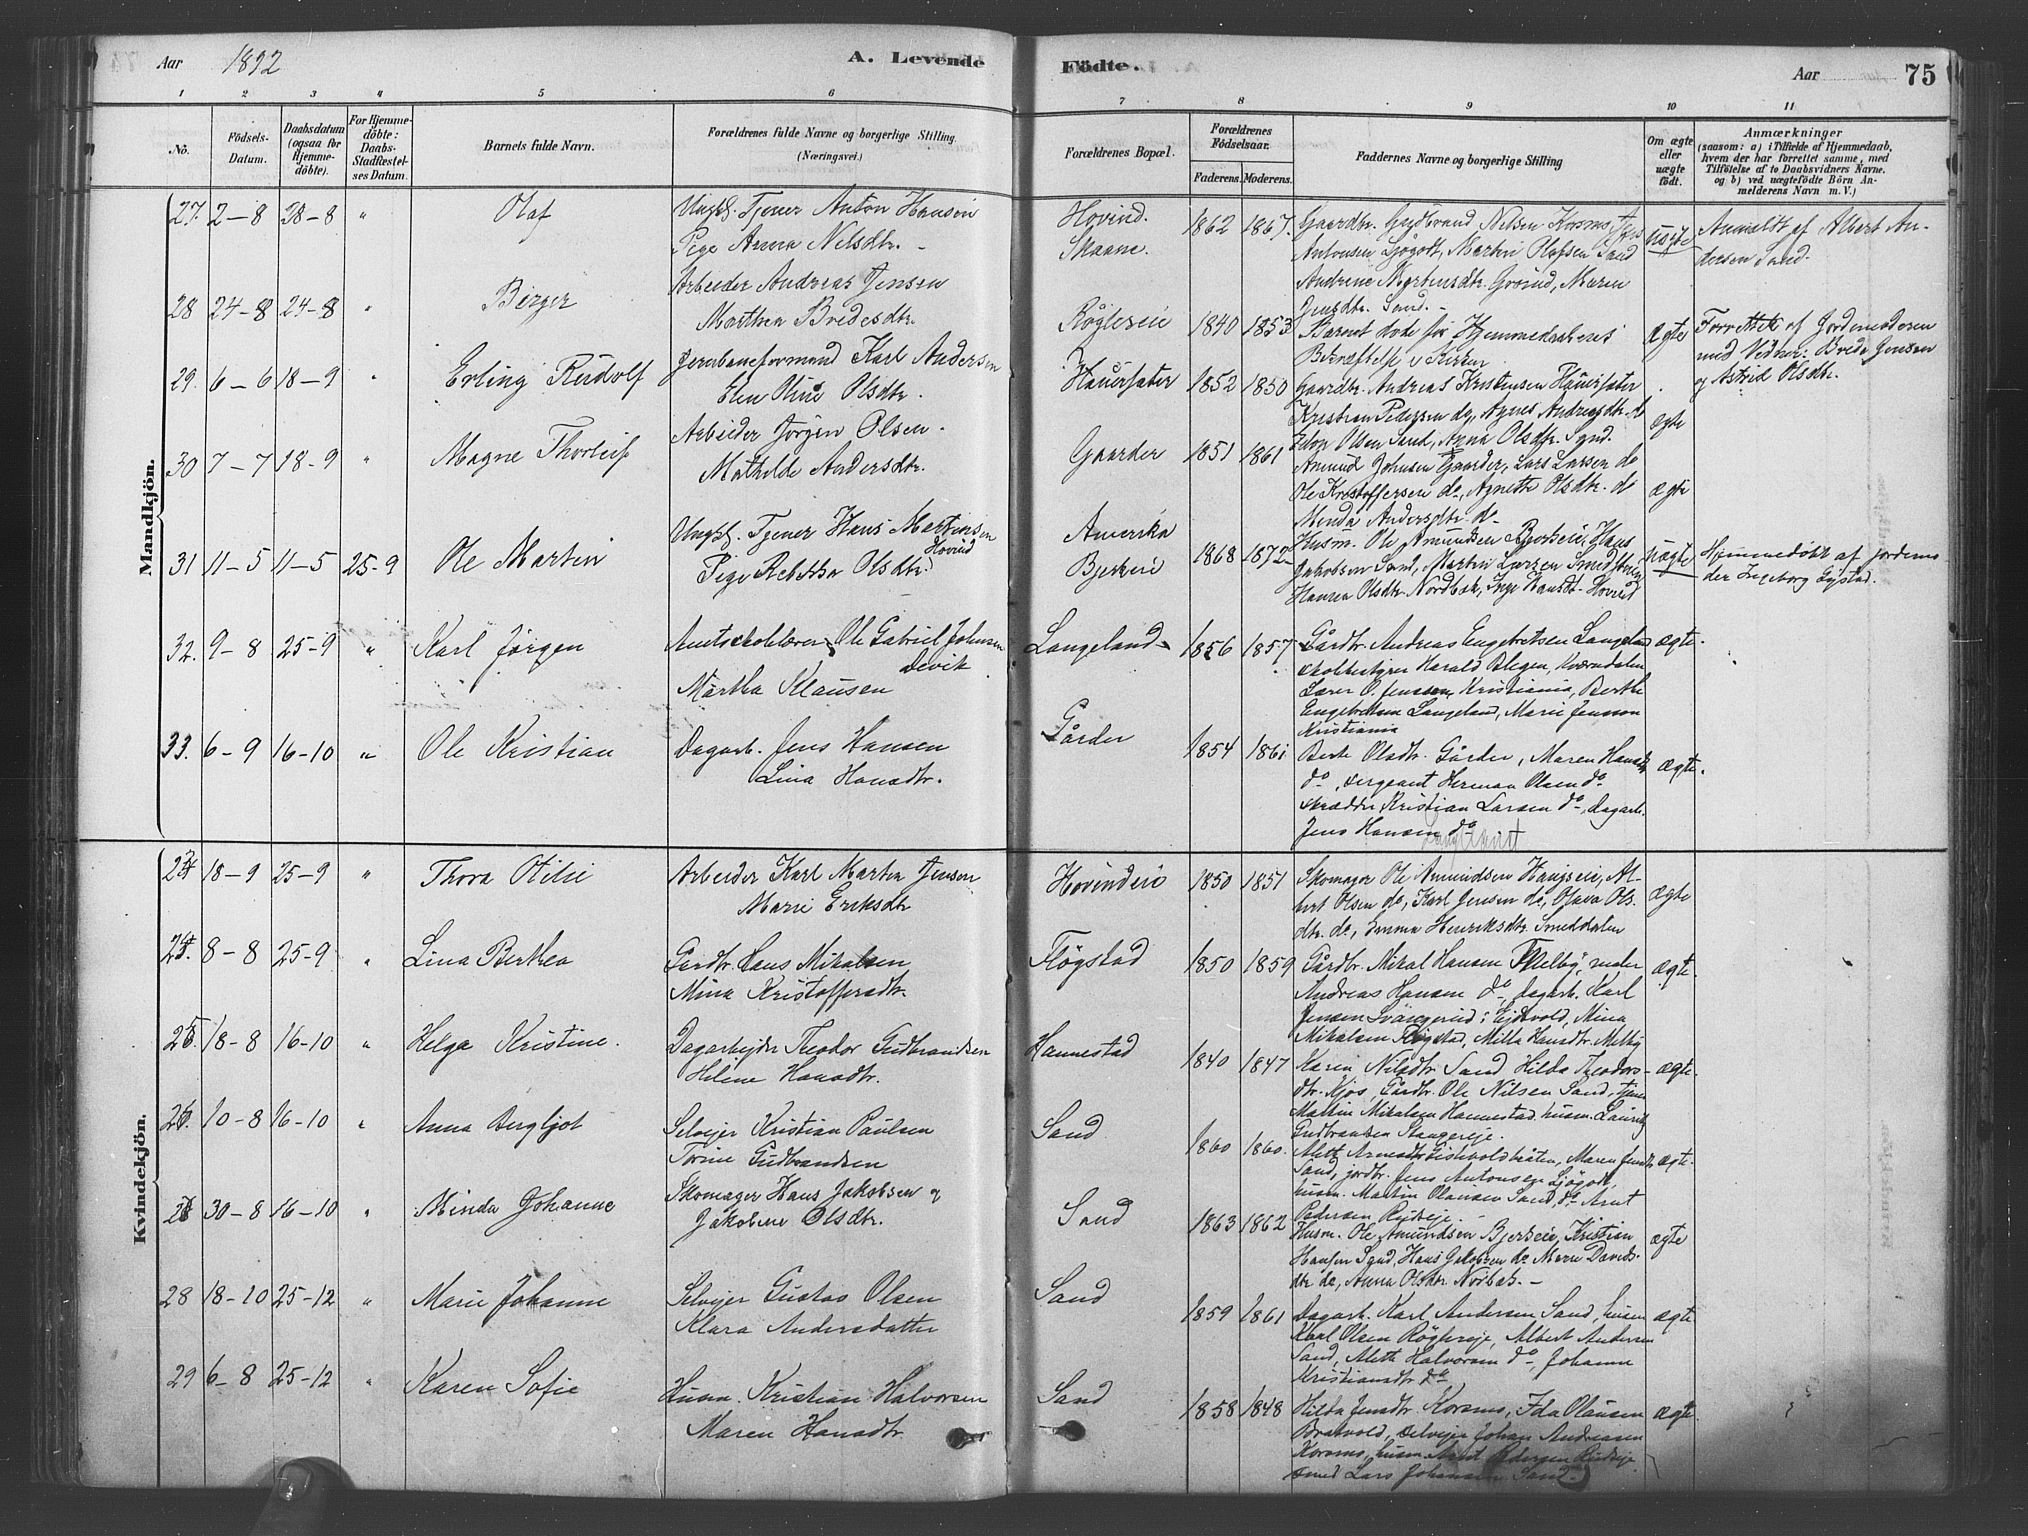 Aar 1892 A. Levende Födte. Aar 75
1 2 3 4 5 6 7 8 9 10 11
No.
Födsels-Datum.
Daabsdatum (ogsaa for Hjemme-döbte).
For Hjemme-döbte: Daabs-Stadfæstel-ses Datum.
Barnets fulde Navn.
Forældrenes fulde Navne og borgerlige Stilling (Næringsvei.)
Forældrenes Bopæl.
Forældrenes Födselsaar.
Faderens. Moderens.
Faddernes Navne og borgerlige Stilling
Om ægte eller uægte födt.
Anmærkninger
(saasom: a) i Tilfælde af Hjemmedaab,
hvem der har forrettet samme, med
Tilföielse af to Daabsvidners Navne.
og b) ved uægtefödte Börn An-
melderens Navn m. V.)
Mandkjön.
27. 2-8 28-8 " Olaf
Ungk. Tjener Anton Hansen
Pige Anna Nilsdtr. -
Hovind.
Skaane.
1862 1867.
Gaardbr. Gudbrand Nilsen Korsmo, Jens
Antonsen Sjøgott, Martin Olafsen Sand
Andrine Mortensdtr. Grønd, Maren
Jensdtr. Sand. -
uægte
Anmeldt af Albert An-
dersen Sand.
28 24-8 24-8 " Birger
Arbeider Andreas Jensen
Marthea Bredesdtr.
Røgleseie 1840 1853
Barnet døde før Hjemmedaabens
Bekræftelse i Kirken
ægte
Forrettet af Jordemoderen
med Vidner: Brede Jensen
og Astrid Olsdtr.
29. 6-6 18-9 " Erling Rudolf
Jernbaneformand Karl Andersen
Elen Oline Olsdtr.
Hauersæter 1852 1850
Gaardbr. Andreas Kristensen Hauersæter
Kristian Pedersen do, Agnes Andreasdtr. do
Edvin Olsen Sand, Anna Olsdtr. Sand.
ægte
30 7-7 18-9 " Magne Thorleif
Arbeider Jörgen Olsen.
Mathilde Andersdtr.
Gaarder 1851 1861
Amund Johnsen Gaarder, Lars Larsen do
Ole Kristoffersen do, Agnethe Olsdtr. do
Minda Andersdtr. do
ægte
31 11-5 11-5 25-9 Ole Martin
Ungk. Tjener Hans Martinsen
Pige Rebekka Olsdtr. Hovind
Amerika
Bjerkeie
1868 1872
Husm. Ole Amundsen Bjerkeie, Hans
Jakobsen Sand, Martin Larsen Smedstuen
Hanna Olsdtr. Nordbek, Inge Hansdtr. Hovind
uægte
Hjemmedøbt af Jordemo
der Ingeborg Gystad.
32. 9-8 25-9 " Karl Jørgen
Amtsskolelærer Ole Gabriel Johnsen
Levik
Martha Klausen
Langeland 1856 1857
Gårdbr. Andreas Engebretsen Langeland
skolebestyrer Harald Blegen, Kværndalen
Lærer O. Jenssen, Kristiania, Berthe
Engebretsen Langeland, Marie Jensson
Kristiania
ægte.
33. 6-9 16-10 " Ole Kristian
Dagarb. Jens Hansen
Lina Hansdtr.
Gårder
1854 1861
Berte Olsdtr. Gårder, Maren Hansdtr
do, sergeant Herman Olsen do
skrædder Kristian Larsen do, dagarb.
Jens Hansen do
ægte.
Kvindekjön.
23 18-9 25-9 " Thora Otilie
Arbeider Karl Martin Jensen
Marie Eriksdtr
Hovindeie 1850 1851
Skomager Ole Amundsen Haugseie, Al-
bert Olsen do, Karl Jensen do, Olava Ols
dtr. do, Emma Henriksdtr. Smeddalen
ægte
24. 8-8 25-9 " Lina Berthea
Gårdbr. Hans Mikalsen
Mina Kristoffersdtr.
Fløgstad 1850 1859
Gårdbr. Mikal Hansen Melby, maler
Andreas Hansen do, dagarb. Karl
Jensen Svångerud i Ejdsvold, Mina
Mikalsen Fløgstad, Milla Hansdtr. Melby
ægte.
25. 18-8 16-10 " Helga Kristine.
Dagarbejder Teodor Gudbrandsen
Helene Hansdtr.
Hannestad 1840 1847
Karen Nilsdtr Sand Hilda Theodors-
dtr. Kjos, Gårdbr. Ole Nilsen Sand, tjener
Martin Mikalsen Hannestad, husm. Lauritz
Gudbrandsen Stangereje.
ægte.
26. 10-8 16-10 " Anna Bergljot
Selvejer Kristian Paulsen
Torine Gudbrandsen
Sand 1860 1860.
Alett Arnesdtr. Gistvoldbråten, Maren Jensdtr
Sand, jordbr. Jens Antonsen Sjögott,
husm. Martin Olausen Sand, do Arnt
Pedersen Rudseje. -
ægte.
27 30-8 16-10 " Minda Johanne
Skomager Hans Jakobsen og
Jakobine Olsdtr.
Sand 1863 1862
Husm. Ole Amundsen Bjerkeie, Kristian
Hansen Sand, Hans Jakobsen do Marie Davids-
dtr do, Anna Olsdtr Norbek. -
ægte
28 18-10 25-12 " Marie Johanne
Selvejer Gustav Olsen
Klara Andersdatter
Sand 1859 1861
Dagarb. Karl Andersen Sand, husm
Karl Olsen Røglereje, Albert Andersen
Sand, Alett Halvorsen do, Johanne
Kristiansdtr do
ægte.
29 6-8 25-12 " Karen Sofie
Husm. Kristian Halvorsen
Maren Hansdtr.
Sand 1858 1848
Hilda Jensdtr Korsmo, Ida Olausen
Bratvold, selvejer Johan Andreasen
Korsmo, husm Arnt Pedersen Rudseje
smed Lars Johansen Sand.
ægte.